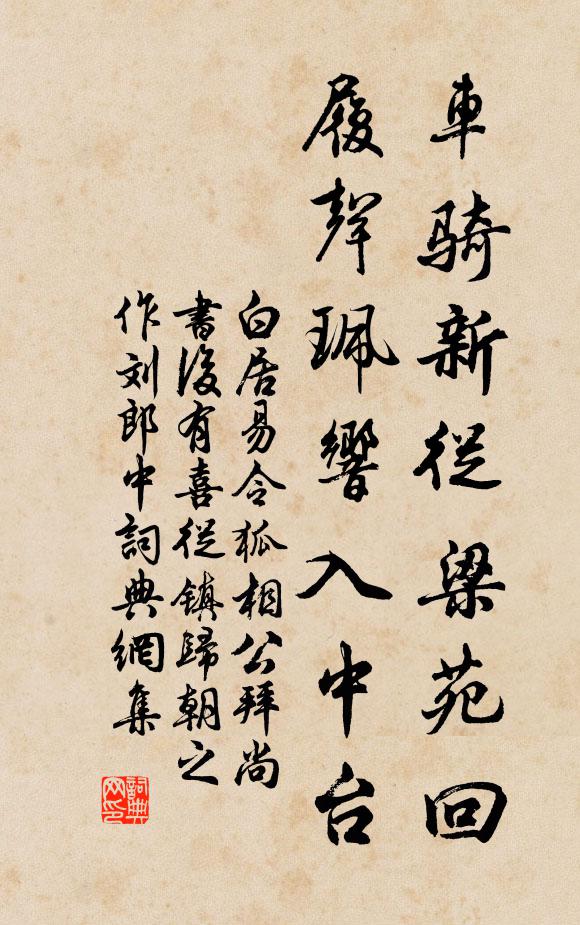 車騎新從梁苑回
履聲珮響入中台
白居易令狐相公拜尚
書後有喜從镇歸朝之
作刘郎中詞典網集
詞典
网印